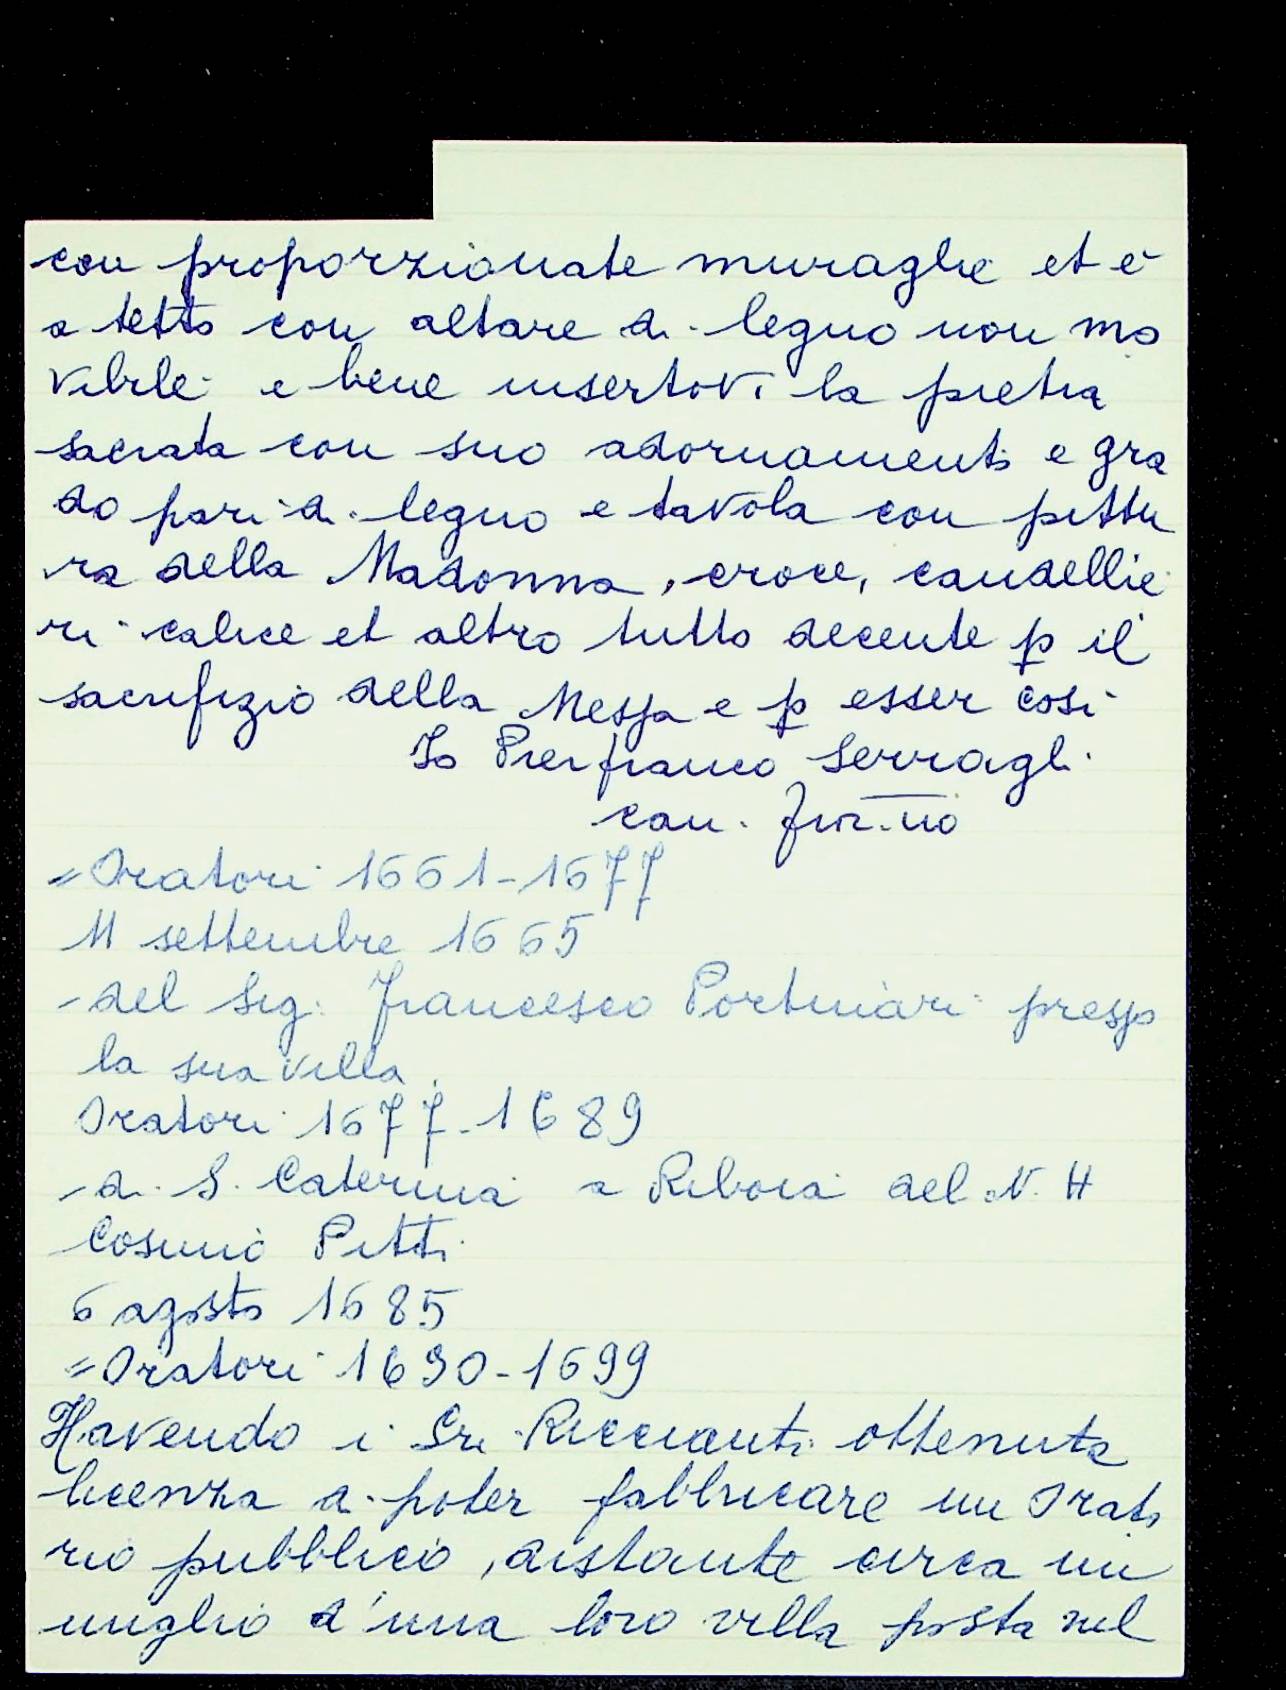 con proporzionate muraglie et è
a tetto con altare di legno non mo
vibile e bene insertovi la pietra
sacrata con suo adornamento e gra
do pari di legno e tavola con pittu
ra della Madonna, croce, candellie
ri calice et altro tutto decente p il
sacrifizio della Messa e p esser così
Io Pierfranco Serragli
can. fior.no
= Oratori 1661-1677
11 settembre 1665
- del Sig. Francesco Portinari presso
la sua villa.
Oratori 1677-1689
- di S. Caterina a Riboia del N. H
Cosimo Pitti
6 agosto 1685
= Oratori 1690-1699
Havendo i Sri Riccianti ottenuta
licenza di poter fabbricare un Orato
rio pubblico, distante circa un
miglio d'una loro villa posta nel